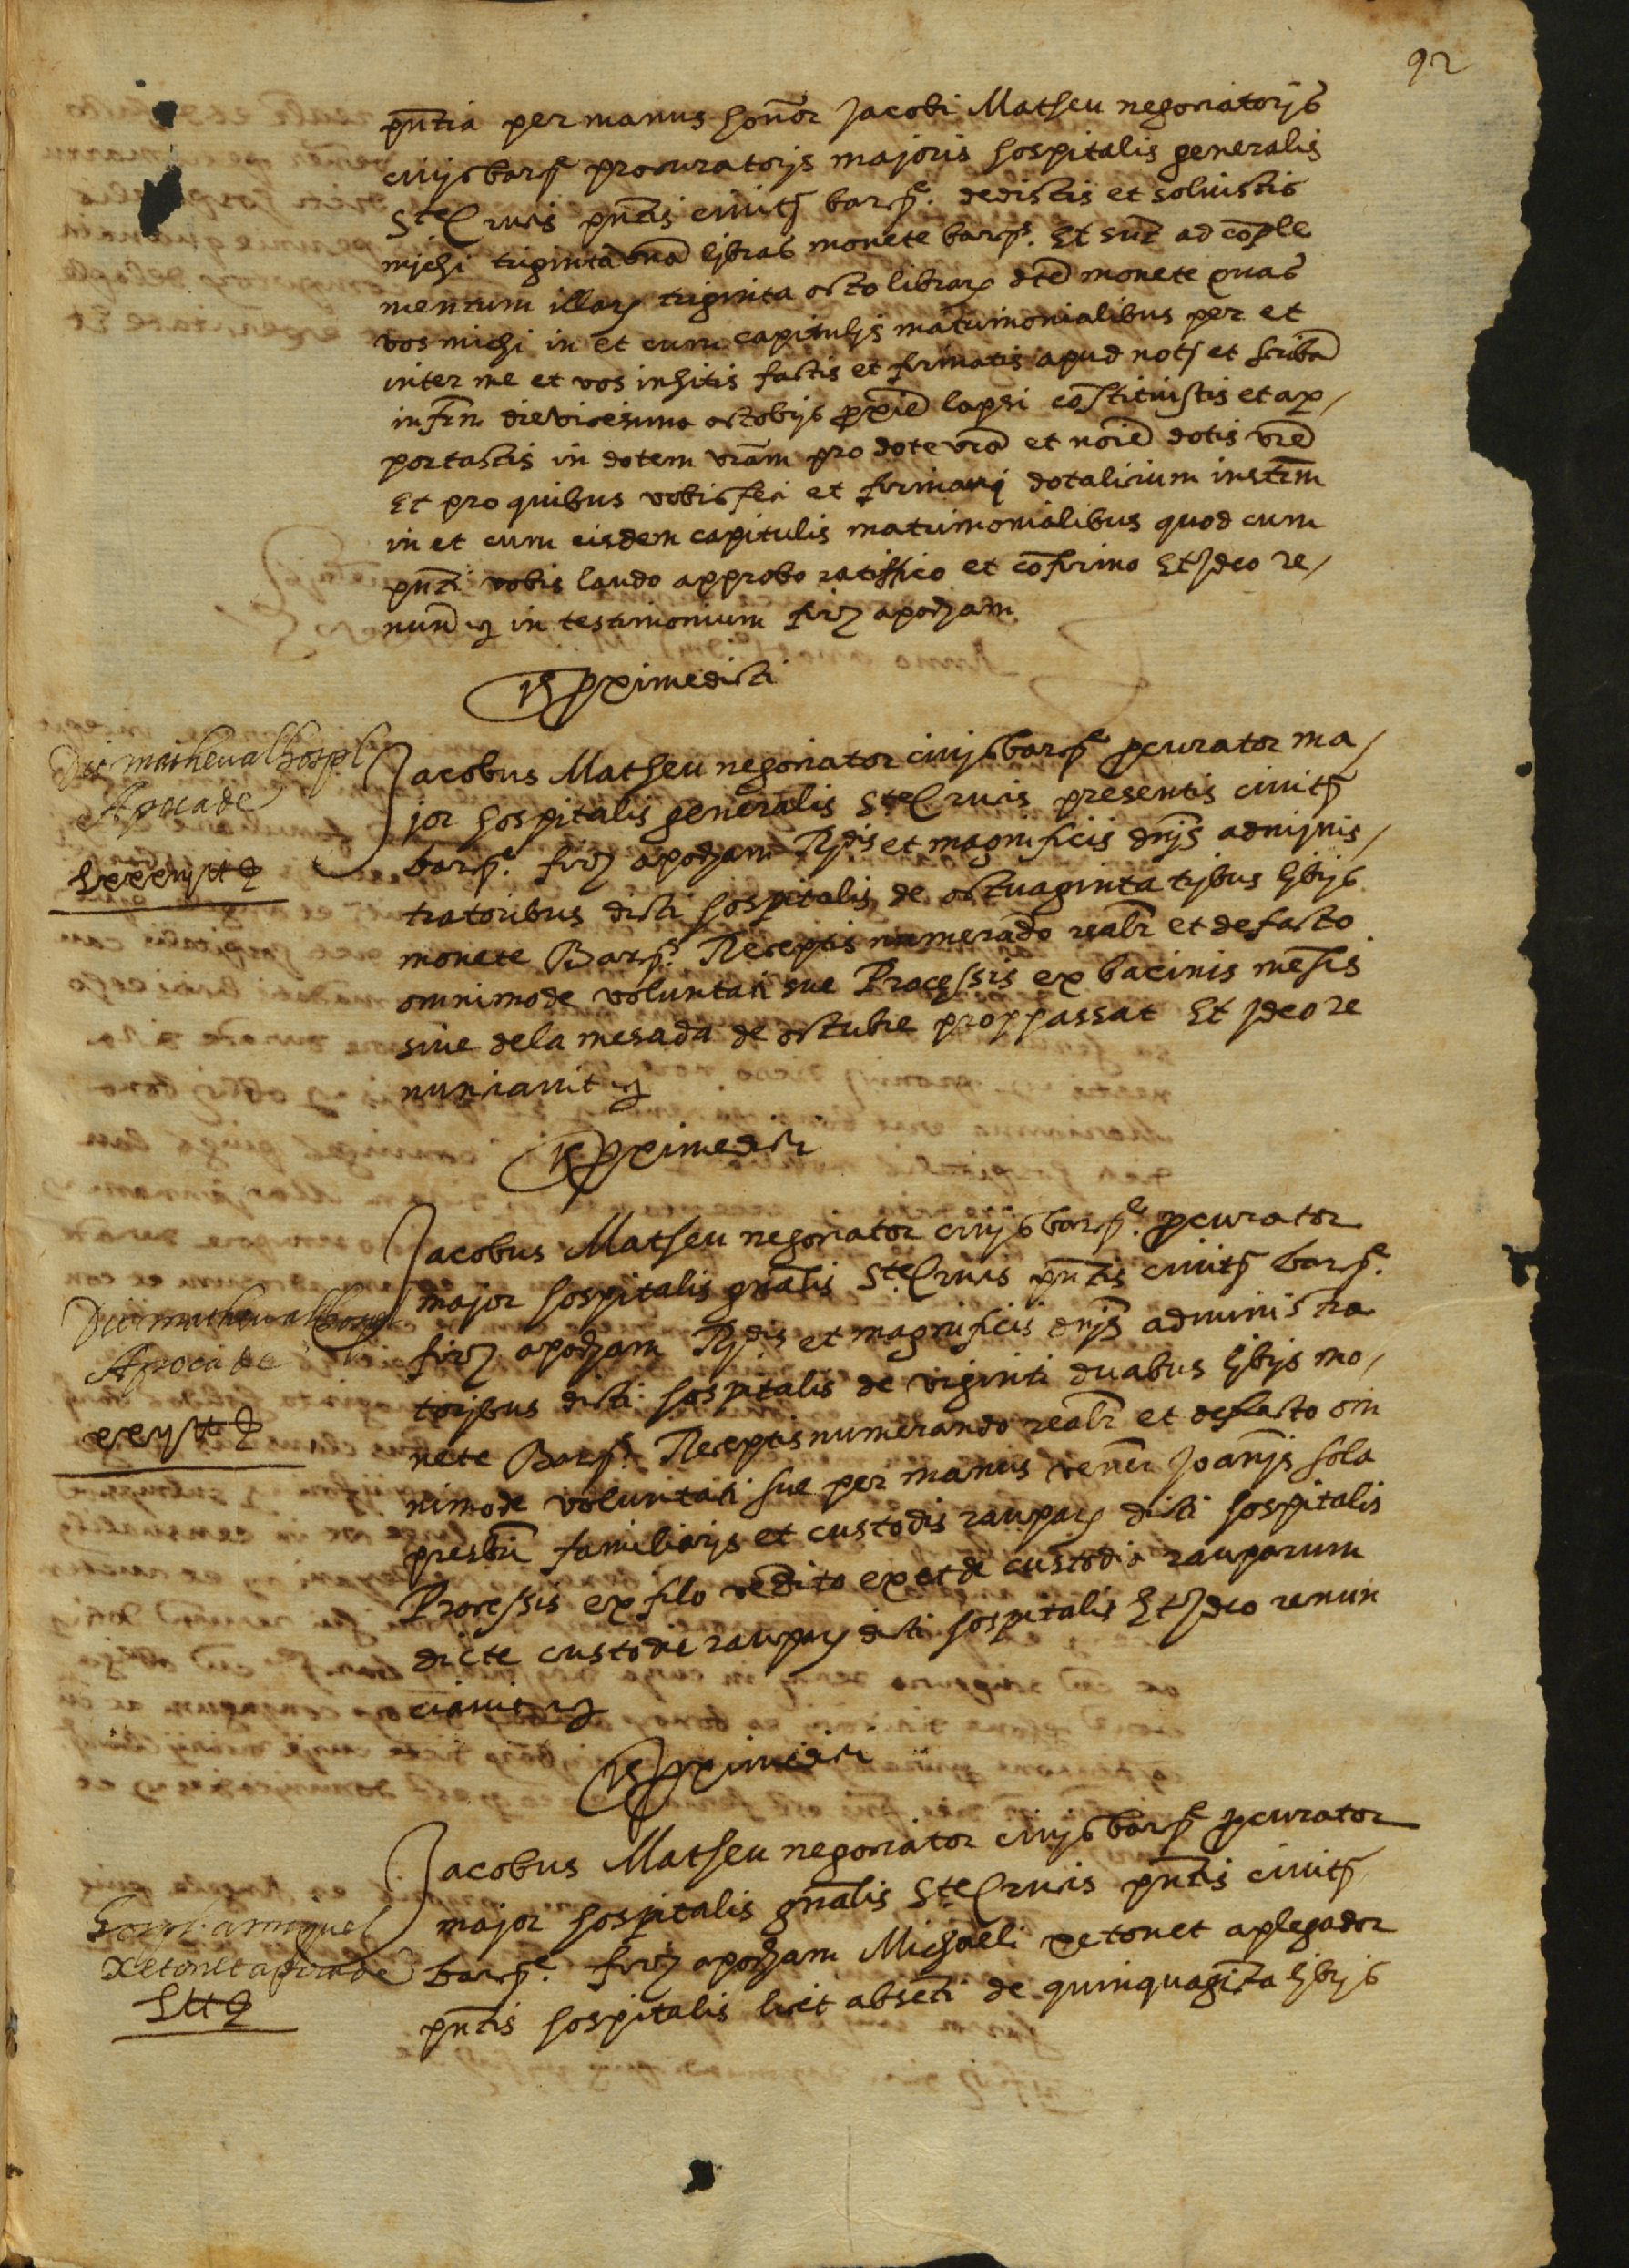 92
pñtia per manus honor Jacobi Matheu negociatoris
civis barce procuratoris majoris hospitalis generalis
Ste Crucis pñtis civits barce. dedistis et solvistis
michi triginta una libras monete barce. Et sut ad cople
mentum illars triginta octo librars dte monete quas
vos michi in et cum capitulis matrimonialibus per et
inter me et vos inhitis factis et firmatis apud nots et scriba
infrm die vicesimo octobris proxie lapsi costituistis et ap/
portastis in dotem vram pro dote vra et noie dotis vre
Et pro quibus vobis feci et firmavi dotalicium instrm
in et cum eisdem capitulis matrimonialibus quod cum
pñti vobis laudo approbo ratiffico et cofirmo Et Ideo re/
nun etz in testimonium firz apocham
Die proxime dicti
Die matheu al hospl
Apoca de
Lxxxiij ll ß
Jacobus Matheu negociator civis barce pcurator ma/
jor hospitalis generalis Ste Crucis presentis civits
barce. firz apocham Rdis et magnificis dnis adminis/
tratoribus dicti hospitalis de octuaginta tribus libris
monete Barce. Receptis numerado realr et de facto
omnimode voluntati sue Processis ex bacinis mesis
sive dela mesada de octubre prop passat Et Ideo re
nunciavit etz
Die proxime dicti
Die matheu al hospl
Apoca de
xxij ll ß
Jacobus Matheu negociator civis barce. pcurator
major hospitalis gñalis Ste Crucis pñtis civits barce.
firz apocham Rdis et magnificis dnis administra
toribus dicti hospitalis de viginti duabus libris mo/
nete Barce. Receptis numerando realr et de facto om
nimode voluntati sue per manus vener Joanis sola
presbri familiaris et custodis raupars dicti hospitalis
Processis ex filo vedito ex et de custodia rauparum
dicte custodie raupars dicti hospitalis Et Ideo renun
ciavit etz
Die proxime dicti
hospl. a miquel
xetonet apoca de
L ll ß
Jacobus Matheu negociator civis barce pcurator
major hospitalis gñalis Ste Crucis pñtis civits
barce. firz apocham Michaeli xetonet aplegador
pñtis hospitalis licet abseti de quinquagita libris